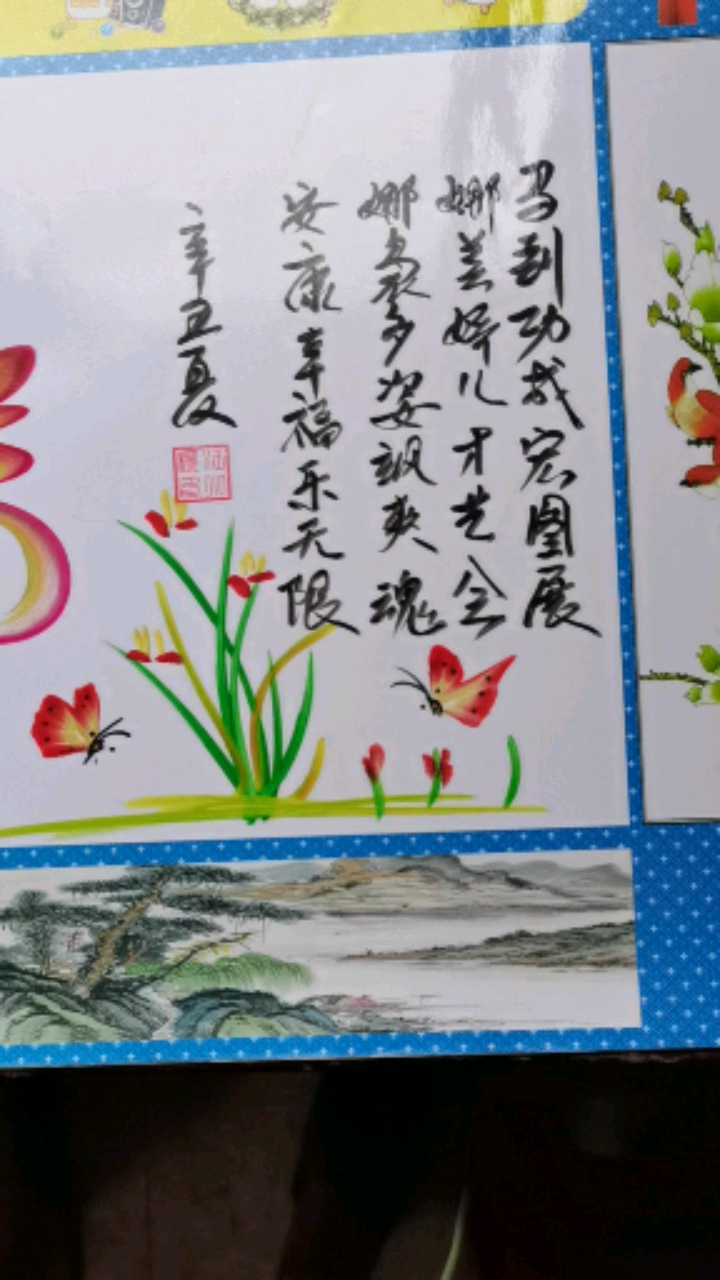 马到功成宏图展
娜美娇儿才艺全
娜袅多姿飒爽魂
安康幸福乐无限
辛丑夏